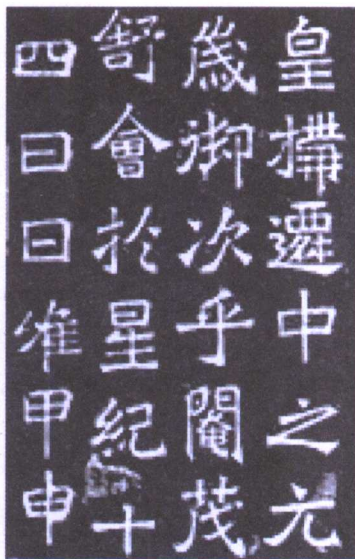 皇搆遷中之元
歲御次乎閹茂
舒會於星紀十
四日日惟甲申